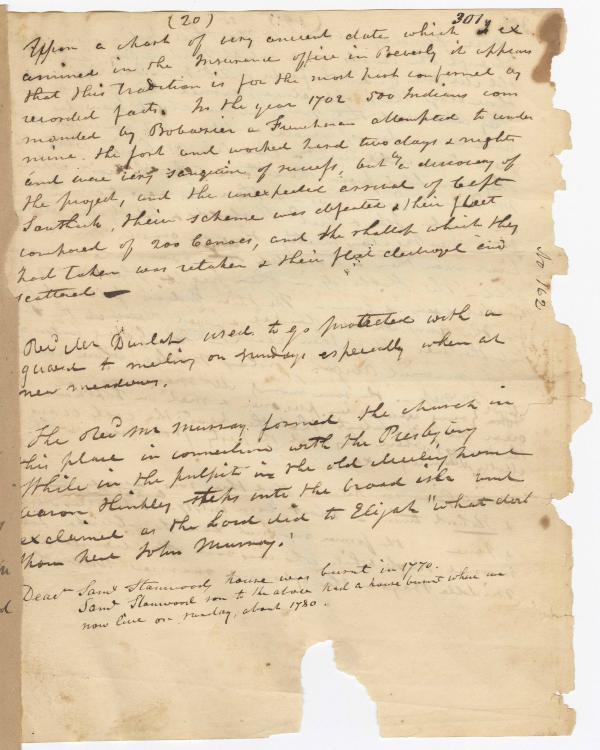 (20)
301
Upon a chart of very ancient date which I ex
amined in the Insurance office in Beverly it appears
that this tradition is for the most part confirmed by
recorded facts. In the year 1702 500 Indians com
manded by Bobasier a Frenchman attempted to under
mine the fort and worked hard two days & nights
and were very sanguine of success, but by a discovery of
the project, and the unexpected arrival of Capt
Southick, their scheme was defeated & their fleet
composed of 200 Canoes, and the shallop which they
had taken was retaken & their fleet destroyed and
scattered —
No 162
Revd Mr Dunlap used to go protected with a
guard to meeting on sundays especially when at
new meadows.
The Revd Mr Murray formed the church in
this place in connection with the Presbytery
While in the pulpit in the old meeting house
Aaron Hinkley steps into the broad isle and
exclaimed as the Lord did to Elijah "what dost
thou here John Murray.!
Deacn Saml Stanwood house was burnt in 1770.
Saml Stanwood son to the above had a house burnt where we
now live on sunday, about 1780.